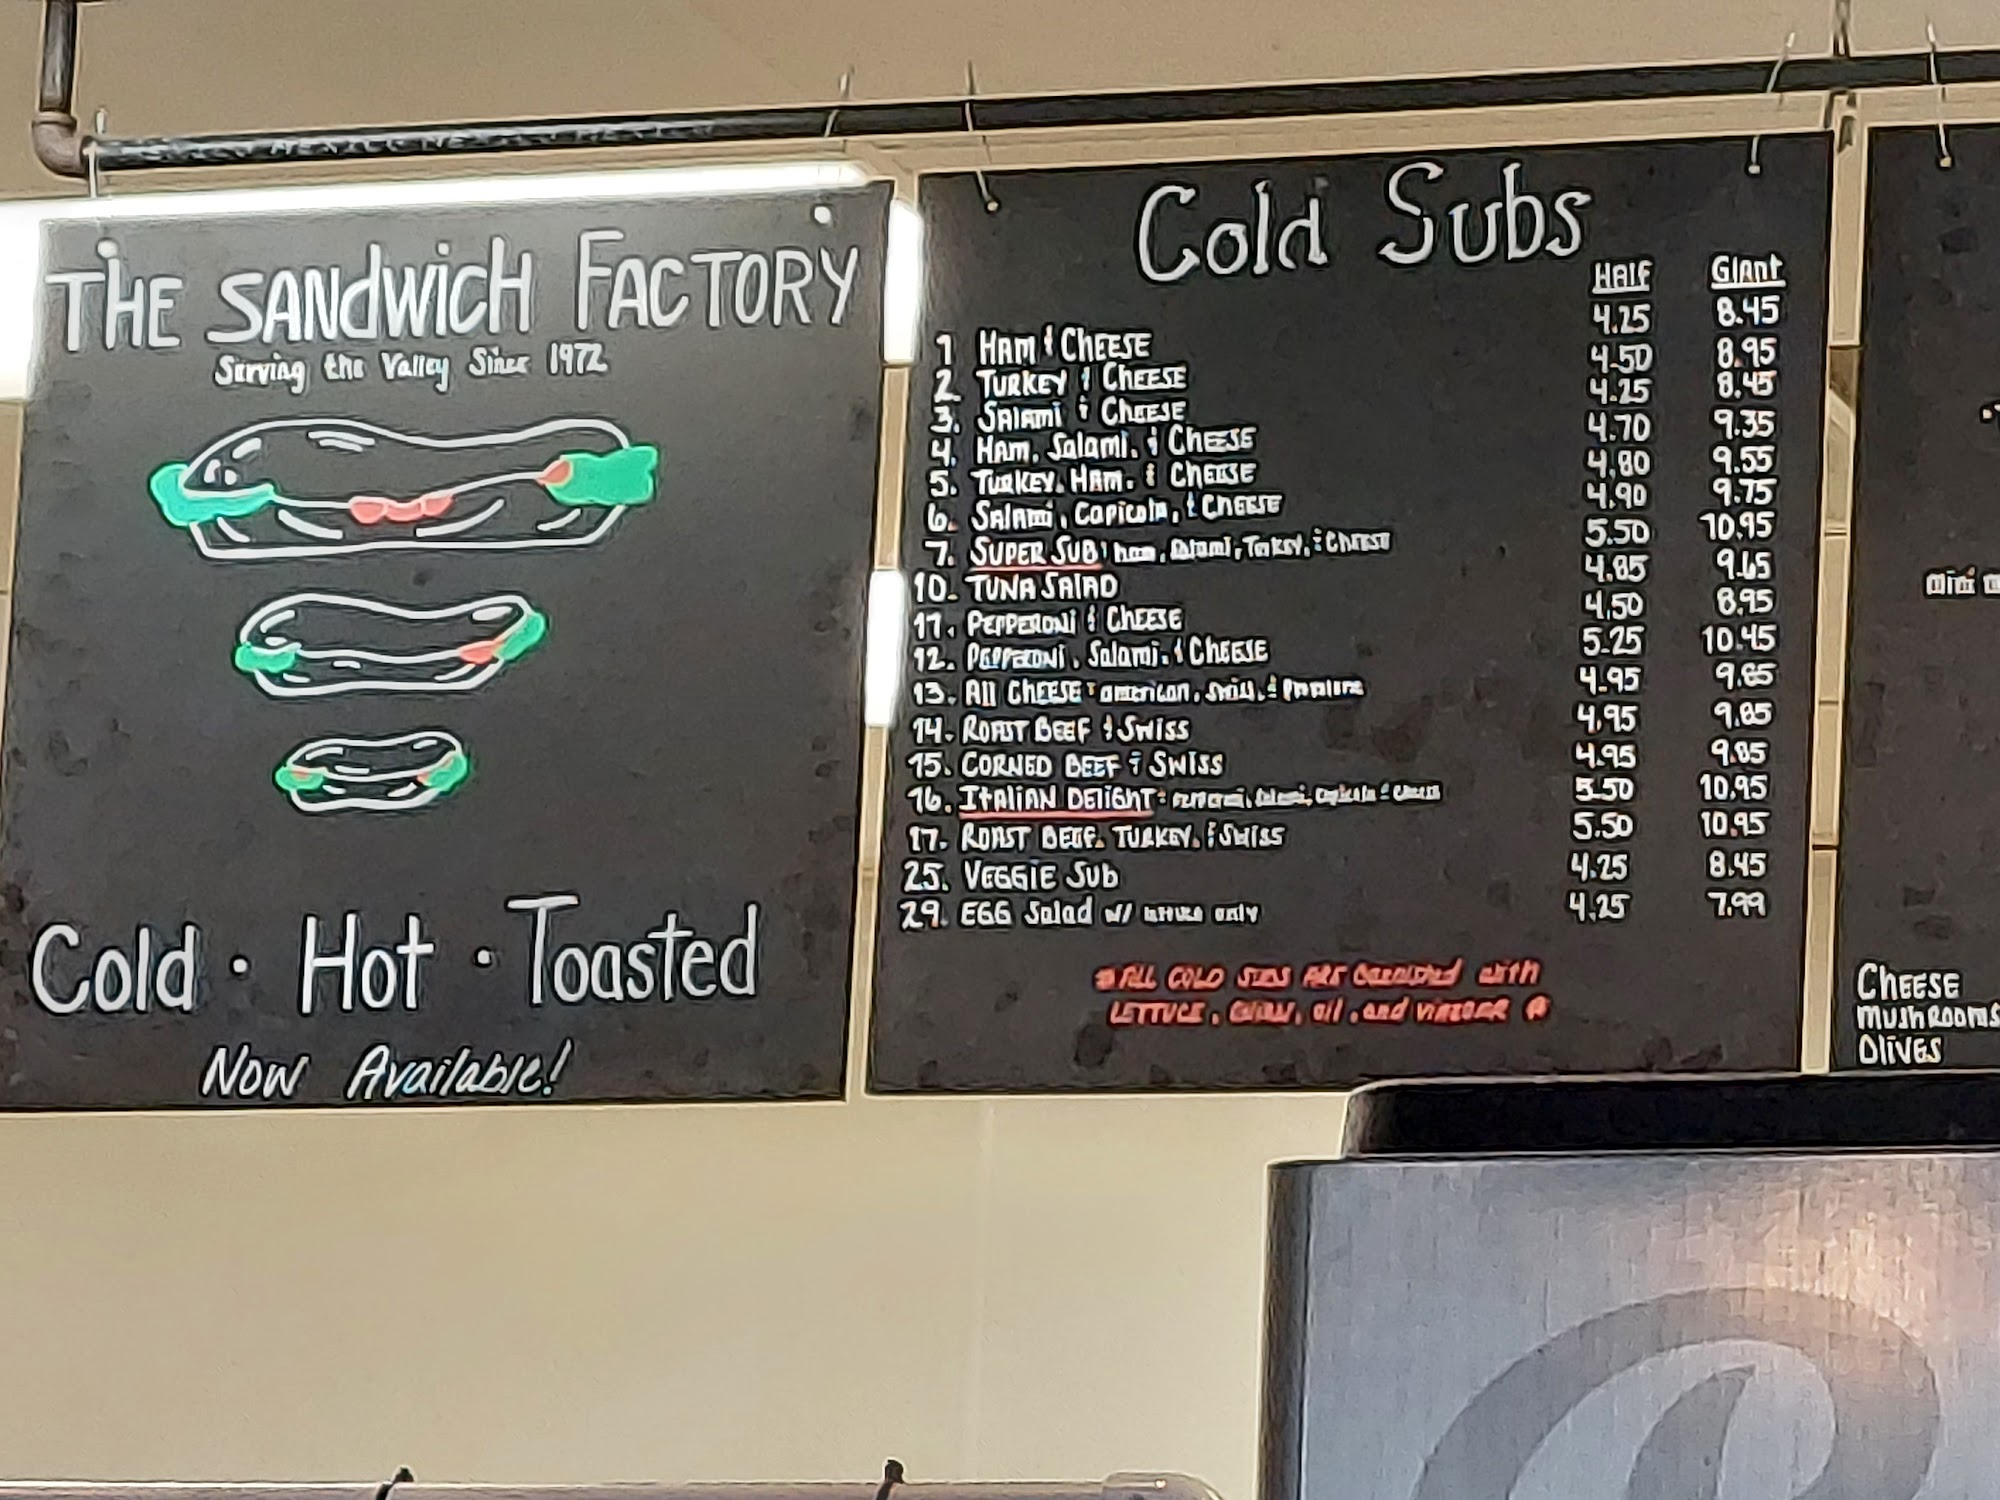 THE SANDWICH FACTORY
Serving the Valley Since 1972
Cold · Hot · Toasted
Now Available!
Cold Subs
Half Giant
1 Ham & Cheese 4.25 8.45
2. Turkey & Cheese 4.50 8.95
3. Salami & Cheese 4.25 8.45
4. Ham, Salami, & Cheese 4.70 9.35
5. Turkey, Ham, & Cheese 4.80 9.55
6. Salami, Capicola, & Cheese 4.90 9.75
7. Super Sub: ham, Salami, Turkey, & Cheese 5.50 10.95
10. Tuna Salad 4.85 9.65
11. Pepperoni & Cheese 4.50 8.95
12. Pepperoni, Salami, & Cheese 5.25 10.45
13. All Cheese: american, swiss, & 4.95 9.85
14. Roast Beef & Swiss 4.95 9.85
15. Corned Beef & Swiss 4.95 9.85
16. Italian Delight: Pepperoni, Salami, Capicola & Cheese 5.50 10.95
17. Roast Beef, Turkey, & Swiss 5.50 10.95
25. Veggie Sub 4.25 8.45
29. Egg Salad w/ lettuce only 4.25 7.99
* All cold subs are garnished with
lettuce, onion, oil, and vinegar *
mini
Cheese
Mushrooms
Olives